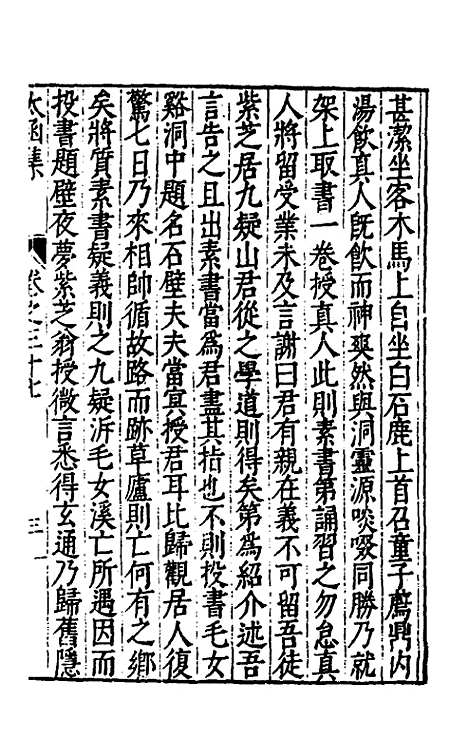 甚潔坐客木馬上自坐白石鹿上首召童子薦鼎内
湯飲真人既飲而神爽然與洞靈源啖啜同勝乃就
架上取書一卷授真人此則素書第誦習之勿怠真
人將留受業未及言謝曰君有親在義不可留吾徒
紫芝居九疑山君從之學道則得矣第為紹介述吾
言告之且出素書當為君盡其指也不則投書毛女
谿洞中題名石壁夫夫當冥授君耳比歸觀居人復
驚七日乃來相帥循故路而跡草廬則亡何有之鄉
矣將質素書疑義則之九疑泝毛女溪亡所遇因而
投書題壁夜夢紫芝翁授微言悉得玄通乃歸舊隱
太函集
卷之三十七
三